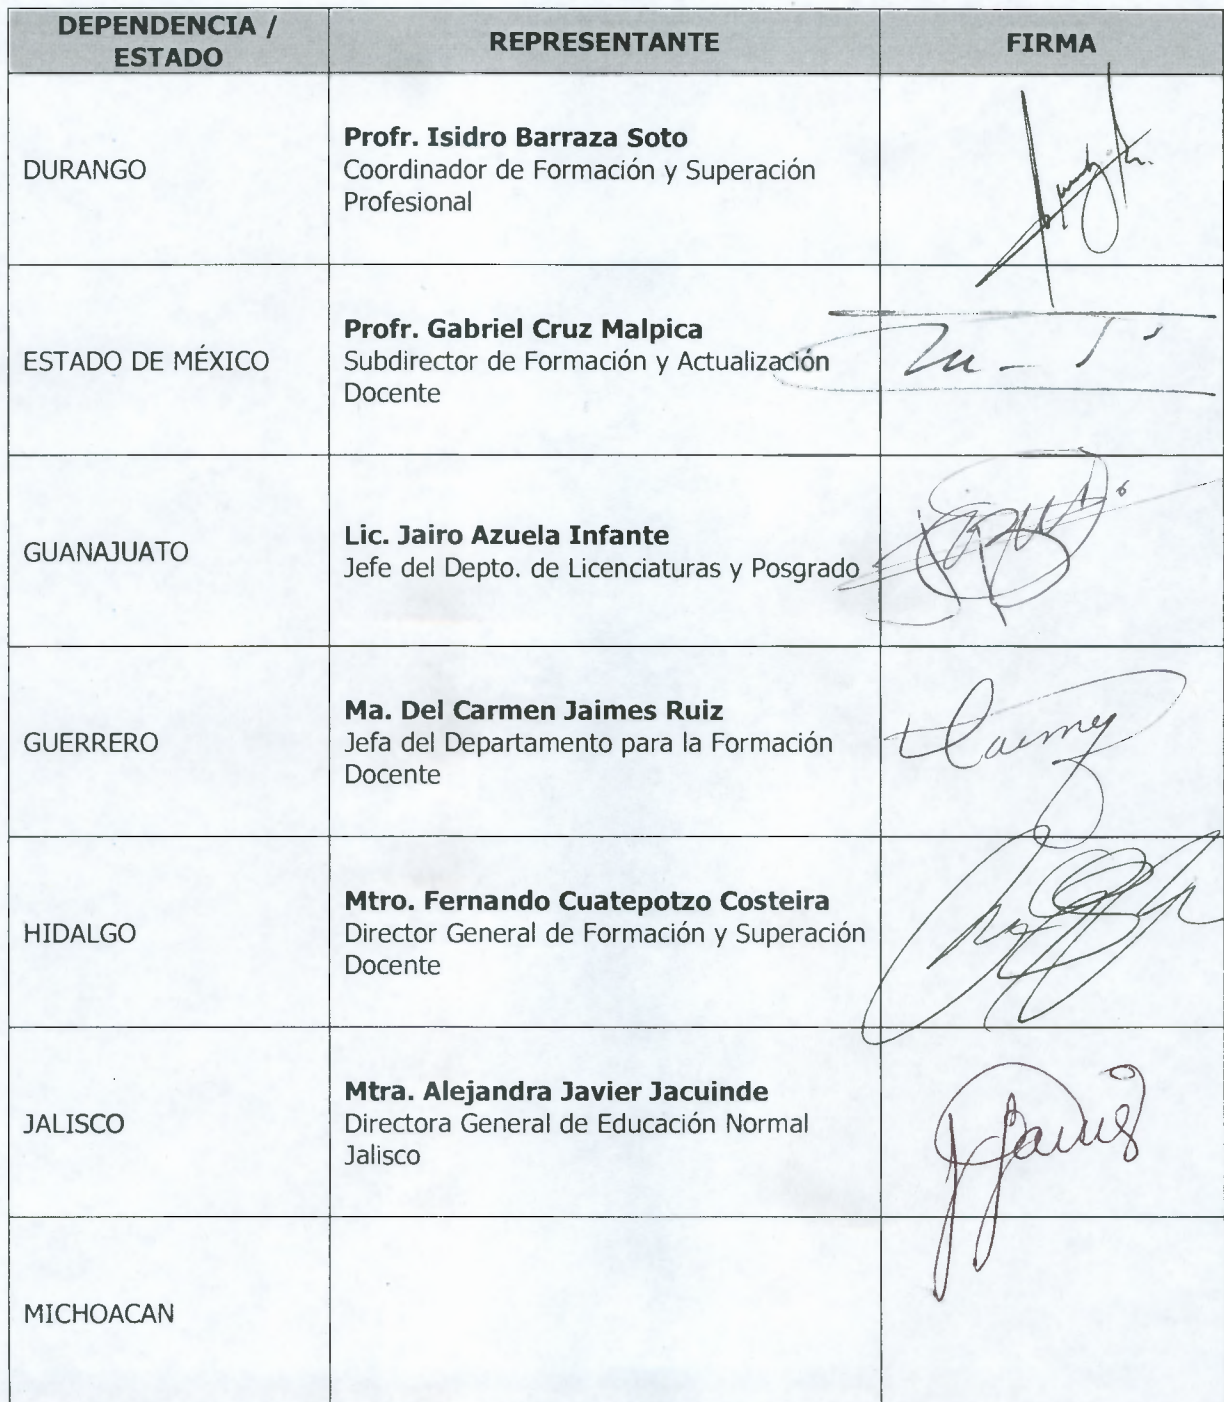 DEPENDENCIA /
ESTADO
REPRESENTANTE
FIRMA
DURANGO
Profr. Isidro Barraza Soto
Coordinador de Formación y Superación
Profesional
ESTADO DE MÉXICO
Profr. Gabriel Cruz Malpica
Subdirector de Formación y Actualización
Docente
GUANAJUATO
Lic. Jairo Azuela Infante
Jefe del Depto. de Licenciaturas y Posgrado
GUERRERO
Ma. Del Carmen Jaimes Ruiz
Jefa del Departamento para la Formación
Docente
HIDALGO
Mtro. Fernando Cuatepotzo Costeira
Director General de Formación y Superación
Docente
JALISCO
Mtra. Alejandra Javier Jacuinde
Directora General de Educación Normal
Jalisco
MICHOACAN